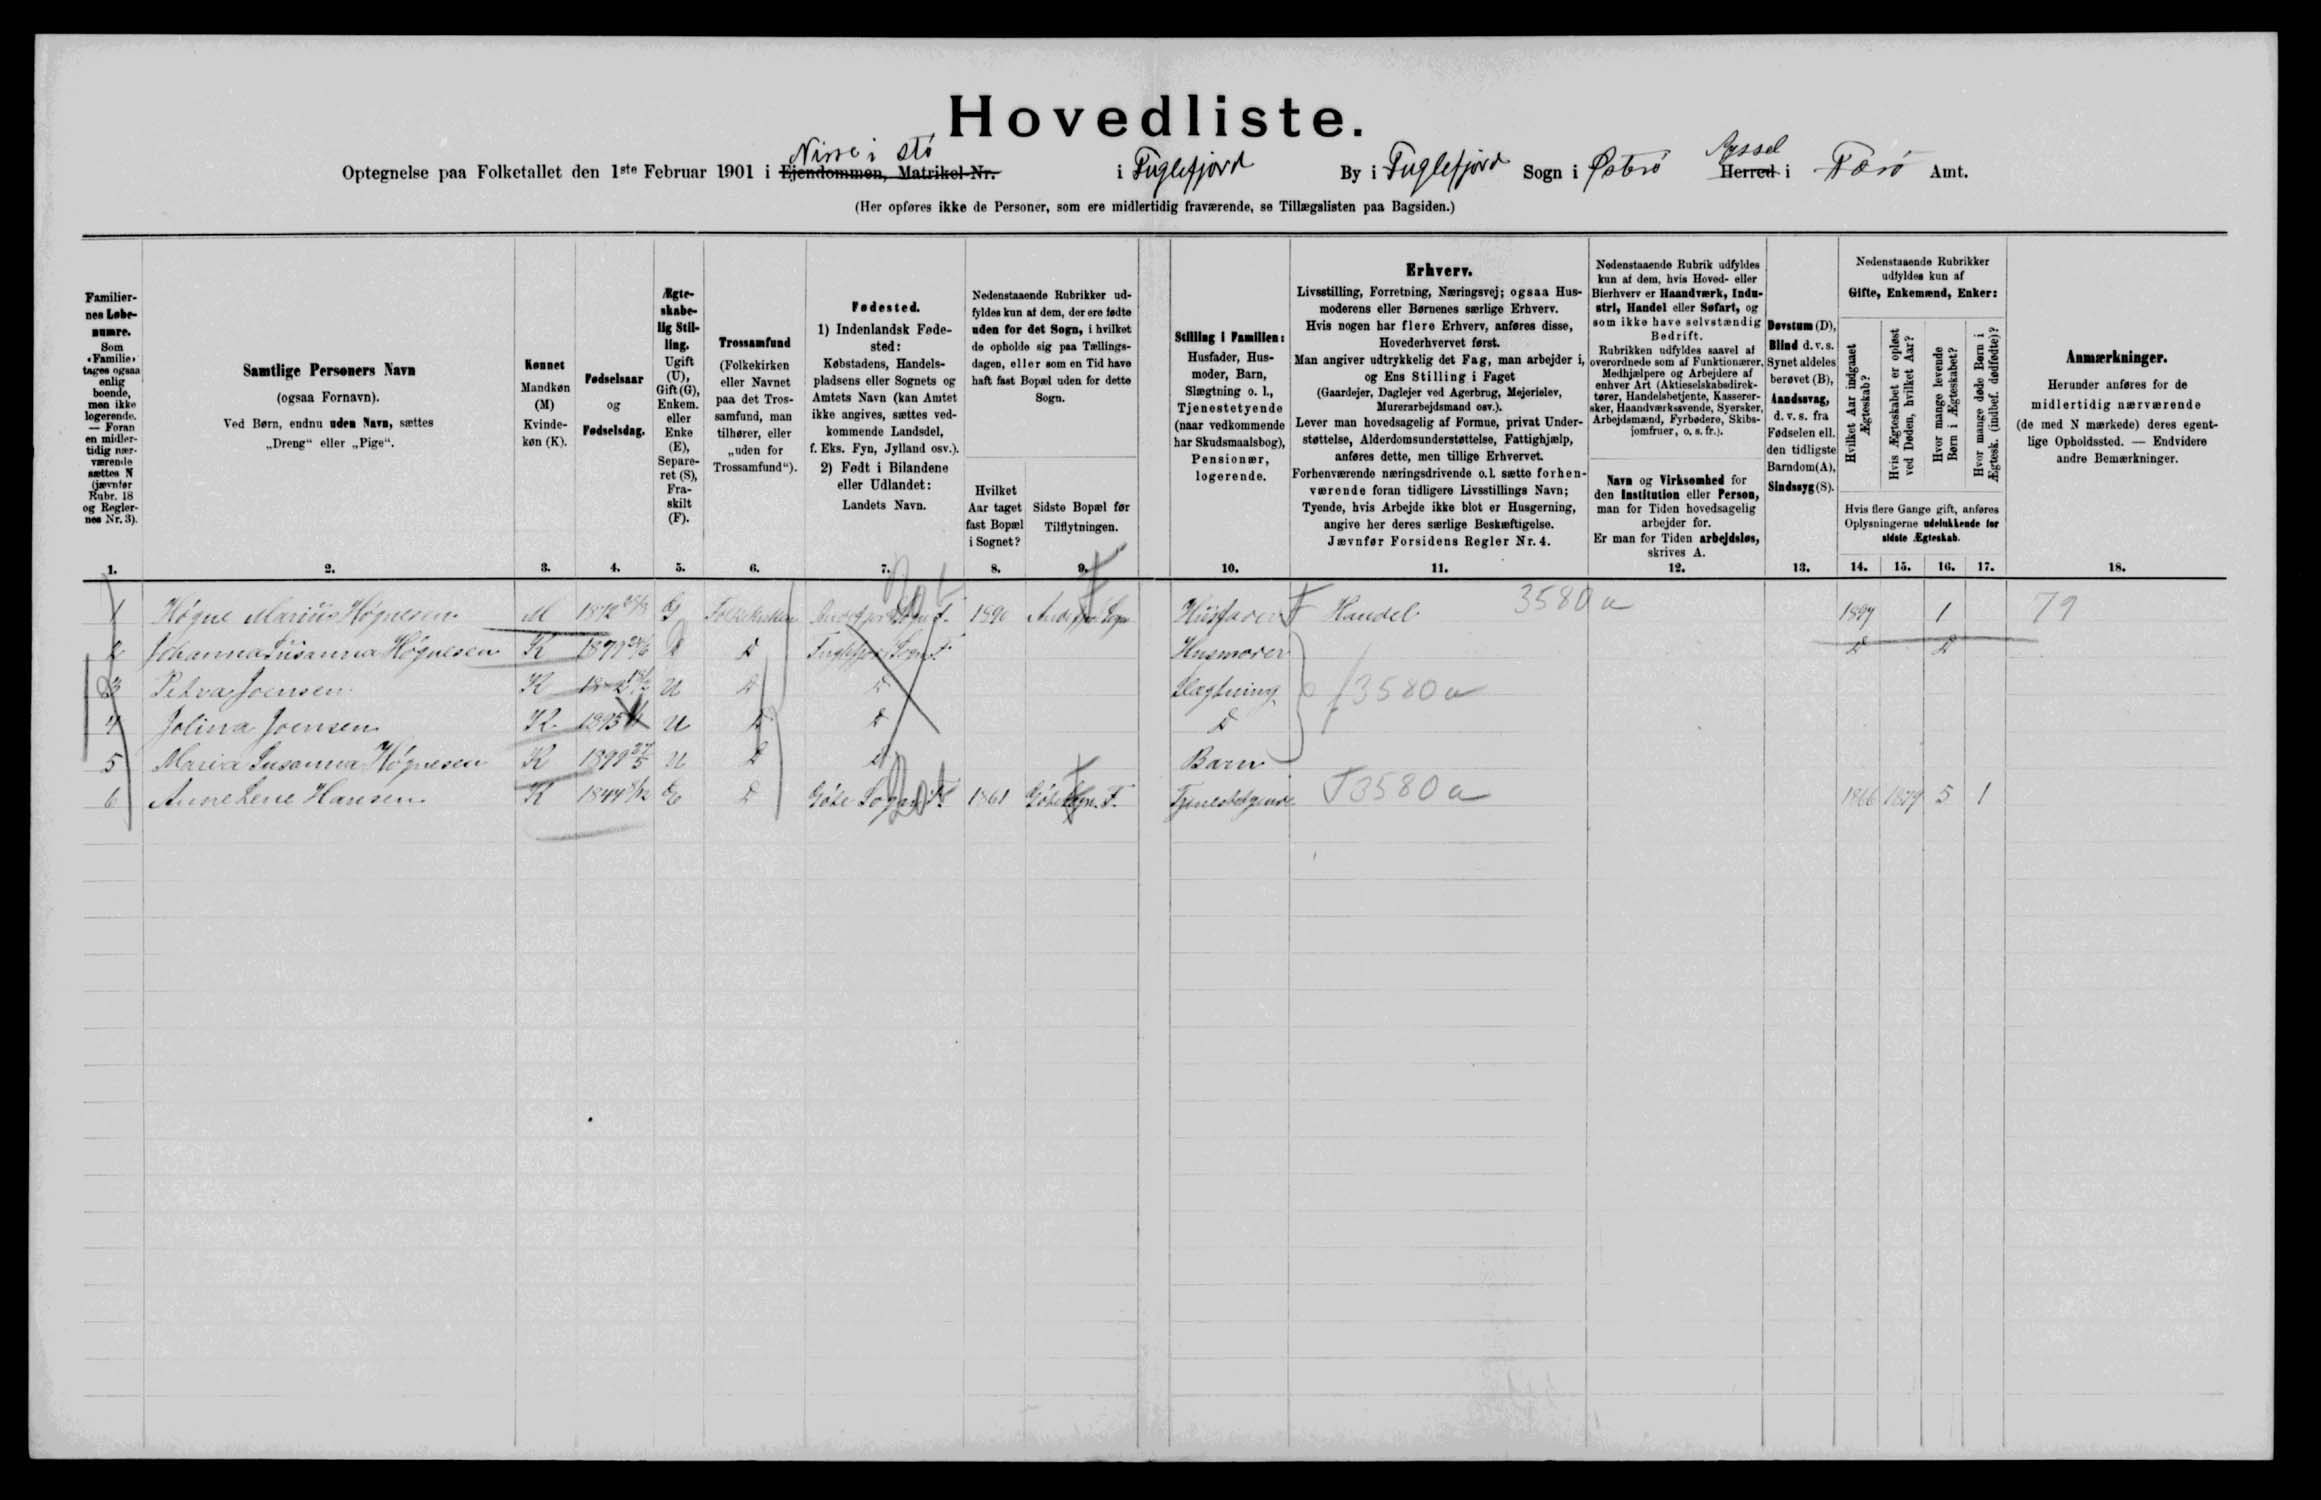 Hovedliste.
Nisse i stó
Optegnelse paa Folketallet den 1ste Februar 1901 i Ejendommen, Matrikel-Nr. i Fuglefjord By i Fuglefjord Sogn i Østrø Herred i Færø Amt.
Syssel
(Her opføres ikke de Personer, som ere midlertidig fraværende, se Tillægslisten paa Bagsiden.)
Familiernes Løbenumre.
Som «Familie» tages ogsaa enlig boende, men ikke logerende. — Foran en midlertidig nærværende sættes N (jævnfør Rubr. 18 og Reglernes Nr. 3).
Samtlige Personers Navn
(ogsaa Fornavn).
Ved Børn, endnu uden Navn, sættes
„Dreng“ eller „Pige“.
Kønnet
Mandkøn
(M)
Kvindekøn (K).
Fødselsaar
og
Fødselsdag.
Ægteskabelig Stilling.
Ugift (U), Gift (G), Enkem. eller Enke (E), Separeret (S), Fraskilt (F).
Trossamfund
(Folkekirken eller Navnet paa det Trossamfund, man tilhører, eller „uden for Trossamfund“).
Fødested.
1) Indenlandsk Fødested:
Købstadens, Handelspladsens eller Sognets og Amtets Navn (kan Amtet ikke angives, sættes vedkommende Landsdel, f. Eks. Fyn, Jylland osv.).
2) Født i Bilandene eller Udlandet:
Landets Navn.
Nedenstaaende Rubrikker udfyldes kun af dem, der ere fødte uden for det Sogn, i hvilket de opholde sig paa Tællingsdagen, eller som en Tid have haft fast Bopæl uden for dette Sogn.
Hvilket Aar taget fast Bopæl i Sognet?
Sidste Bopæl før Tilflytningen.
Stilling i Familien:
Husfader, Husmoder, Barn, Slægtning o. l., Tjenestetyende (naar vedkommende har Skudsmaalsbog), Pensionær, logerende.
Erhverv.
Livsstilling, Forretning, Næringsvej; ogsaa Husmoderens eller Børnenes særlige Erhverv.
Hvis nogen har flere Erhverv, anføres disse, Hovederhvervet først.
Man angiver udtrykkelig det Fag, man arbejder i, og Ens Stilling i Faget
(Gaardejer, Daglejer ved Agerbrug, Mejerielev, Murerarbejdsmand osv.).
Lever man hovedsagelig af Formue, privat Understøttelse, Alderdomsunderstøttelse, Fattighjælp, anføres dette, men tillige Erhvervet.
Forhenværende næringsdrivende o. l. sætte forhenværende foran tidligere Livsstillings Navn;
Tyende, hvis Arbejde ikke blot er Husgerning, angive her deres særlige Beskæftigelse.
Jævnfør Forsidens Regler Nr. 4.
Nedenstaaende Rubrik udfyldes kun af dem, hvis Hoved- eller Bierhverv er Haandværk, Industri, Handel eller Søfart, og som ikke have selvstændig Bedrift.
Rubrikken udfyldes saavel af overordnede som af Funktionærer, Medhjælpere og Arbejdere af enhver Art (Aktieselskabsdirektører, Handelsbetjente, Kasserersker, Haandværkssvende, Syersker, Arbejdsmænd, Fyrbødere, Skibsjomfruer, o. s. fr.).
Navn og Virksomhed for den Institution eller Person, man for Tiden hovedsagelig arbejder for.
Er man for Tiden arbejdsløs, skrives A.
Døvstum (D), Blind d. v. s. Synet aldeles berøvet (B), Aandssvag, d. v. s. fra Fødselen ell. den tidligste Barndom (A), Sindssyg (S).
Nedenstaaende Rubrikker udfyldes kun af
Gifte, Enkemænd, Enker:
Hvilket Aar indgaaet Ægteskab?
Hvis Ægteskabet er opløst ved Døden, hvilket Aar?
Hvor mange levende Børn i Ægteskabet?
Hvor mange døde Børn i Ægtesk. (indbef. dødfødte)?
Hvis flere Gange gift, anføres Oplysningerne udelukkende for sidste Ægteskab.
Anmærkninger.
Herunder anføres for de midlertidig nærværende (de med N mærkede) deres egentlige Opholdssted. — Endvidere andre Bemærkninger.
1. 2. 3. 4. 5. 6. 7. 8. 9. 10. 11. 12. 13. 14. 15. 16. 17. 18.
1 Høgne Marius Høgnesen M 1872 G Folkekirken 1890 Husfader Handel 3580 a 1897 1 79
2 Johanna Susanna Høgnesen K Fuglefjord Sogn F. Husmoder
3 Petra Joensen K U Slægtning 3580 a
4 Jolina Joensen K. 1895 U
5 Maria Susanna Høgnesen K 1899 27/5 U Barn
6 Anne Lene Hansen K 1844 E Göte Sogn F. 1861 Göte Sogn F. Tjenestetyende 3580 a 1866 1879 5 1